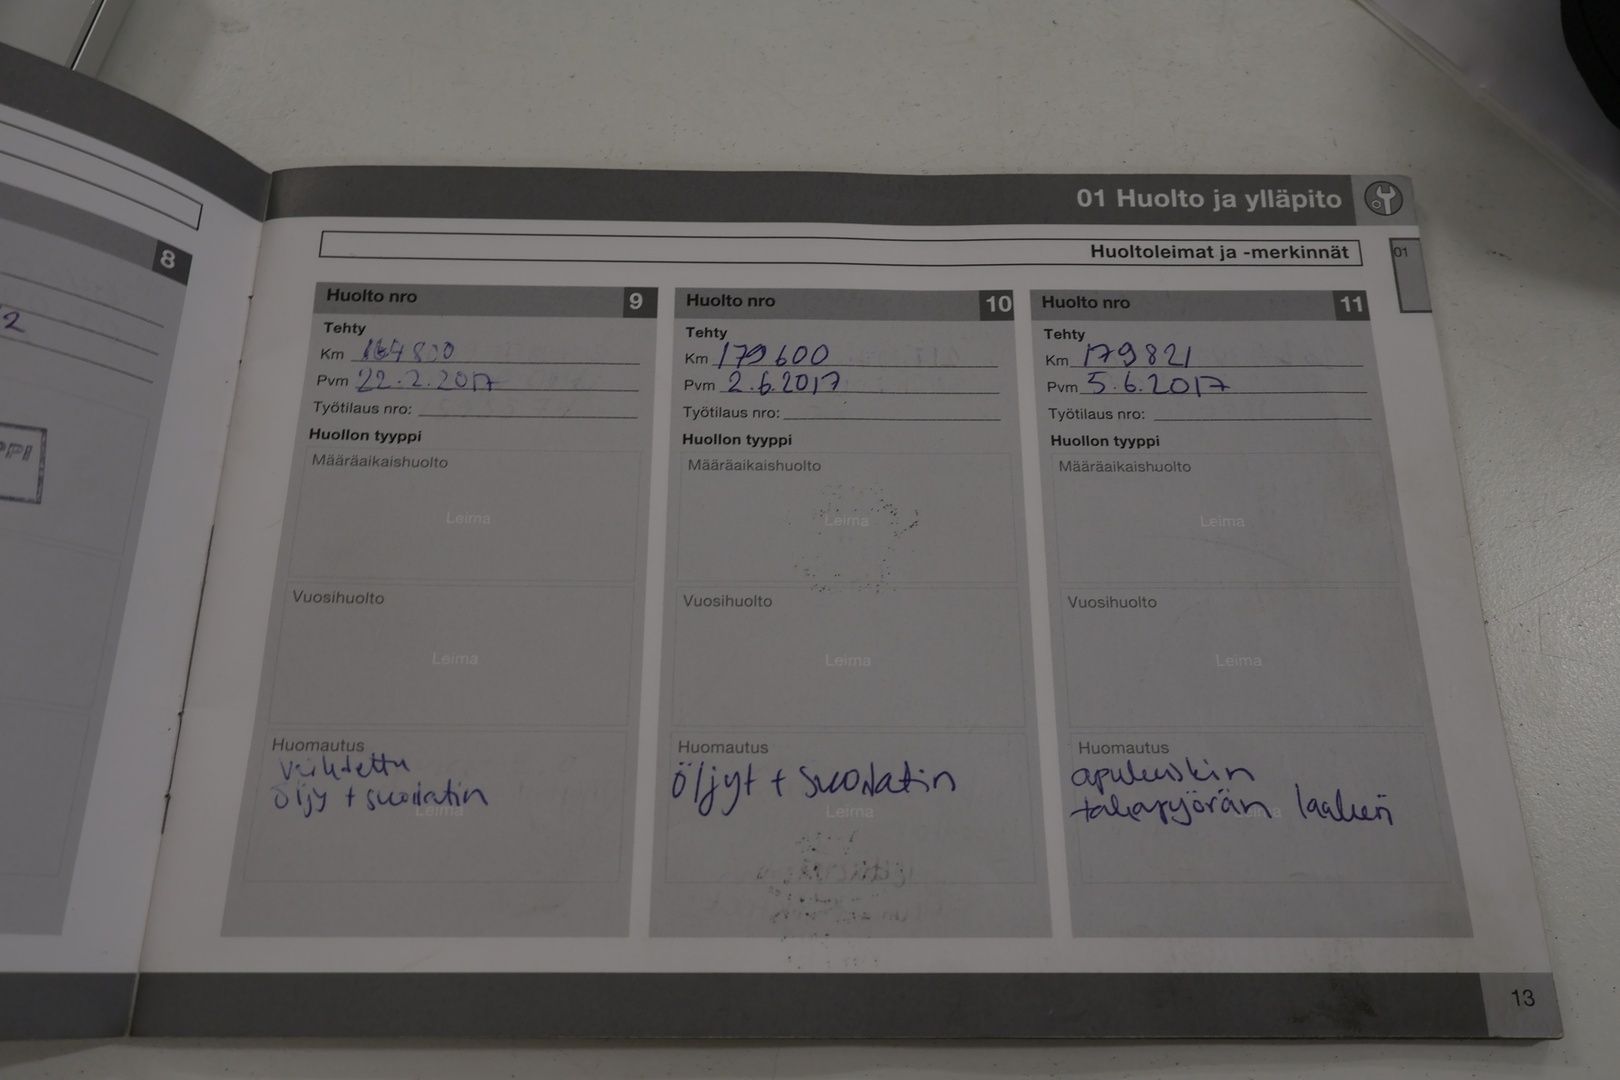 8
2
PPI
01 Huolto ja ylläpito
01
Huoltoleimat ja -merkinnät
Huolto nro 9
Tehty
Km 164800
Pvm 22.2.2017
Työtilaus nro:
Huollon tyyppi
Määräaikaishuolto
Leima
Vuosihuolto
Leima
Huomautus
vaihdettu
öljy + suodatin
Leima
Huolto nro 10
Tehty
Km 179600
Pvm 2.6.2017
Työtilaus nro:
Huollon tyyppi
Määräaikaishuolto
Leima
Vuosihuolto
Leima
Huomautus
öljyt + suodatin
Leima
Huolto nro 11
Tehty
Km 179821
Pvm 5.6.2017
Työtilaus nro:
Huollon tyyppi
Määräaikaishuolto
Leima
Vuosihuolto
Leima
Huomautus
takapyörän laakeri
Leima
13